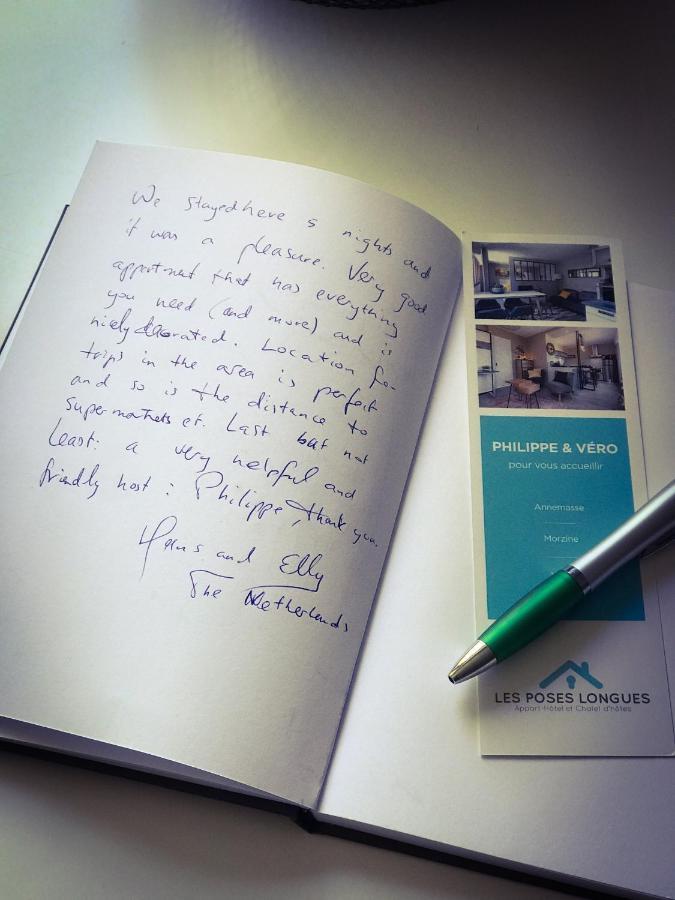 We stayed here 5 nights and
it was a pleasure. Very good
appartment that has everything
you need (and more) and is
nicely decorated. Location for
trips in the area is perfect
and so is the distance to
supermarkets et. Last but not
least: a very helpful and
friendly host: Philippe, thank you.
Hans and Elly
The Netherlands
PHILIPPE & VÉRO
pour vous accueillir
Annemasse
Morzine
LES POSES LONGUES
Appart-Hôtel et Chalet d'hôtes